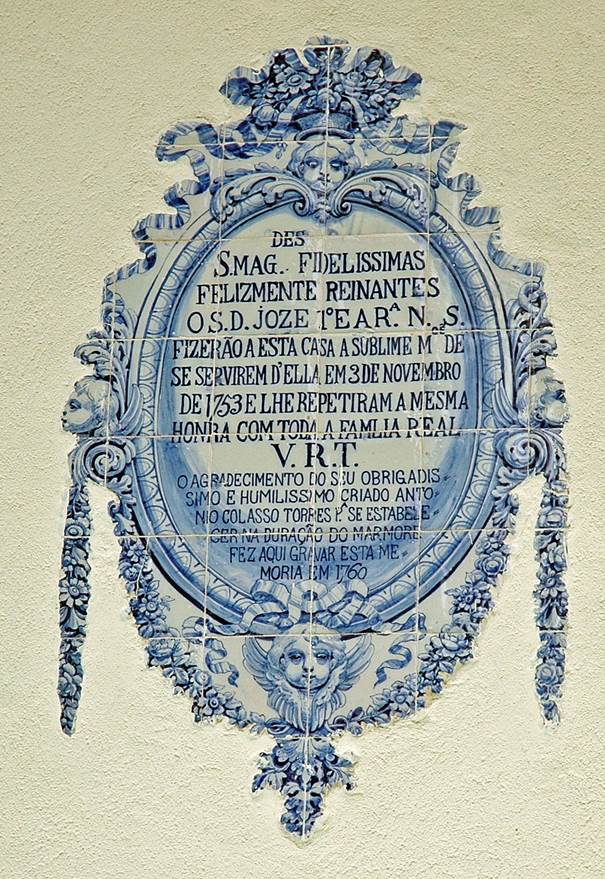 DES
S.MAG. FIDELISSIMAS
FELIZMENTE REINANTES
O S.D. JOZE 1º E A Rᴬ. N. S.
FIZERÃO A ESTA CASA A SUBLIME Mᶜᵉ DE
SE SERVIREM D'ELLA EM 3 DE NOVEMBRO
DE 1753 E LHE REPETIRAM A MESMA
HONRA COM TODA A FAMLIA REAL
V.R.T.
O AGRADECIMENTO DO SEU OBRIGADIS=
SIMO E HUMILISSIMO CRIADO ANTO=
NIO COLASSO TORRES Pᴬ SE ESTABELE=
CER NA DURAÇÃO DO MARMORE
FEZ AQUI GRAVAR ESTA ME=
MORIA EM 1760